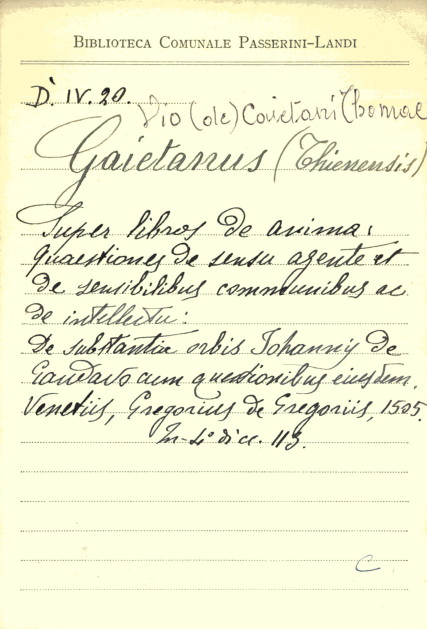 BIBLIOTECA COMUNALE PASSERINI-LANDI
D. IV. 20.
Vio (de) Caietani Thomae
Gaietanus (Thienensis)
Super libros de anima:
quaestiones de sensu agente et
de sensibilibus communibus ac
de intellectu:
De substantia orbis Johannis de
Gandavo cum questionibus eiusdem.
Venetiis, Gregorius de Gregoriis, 1505.
In-4° dicc. 113.
C